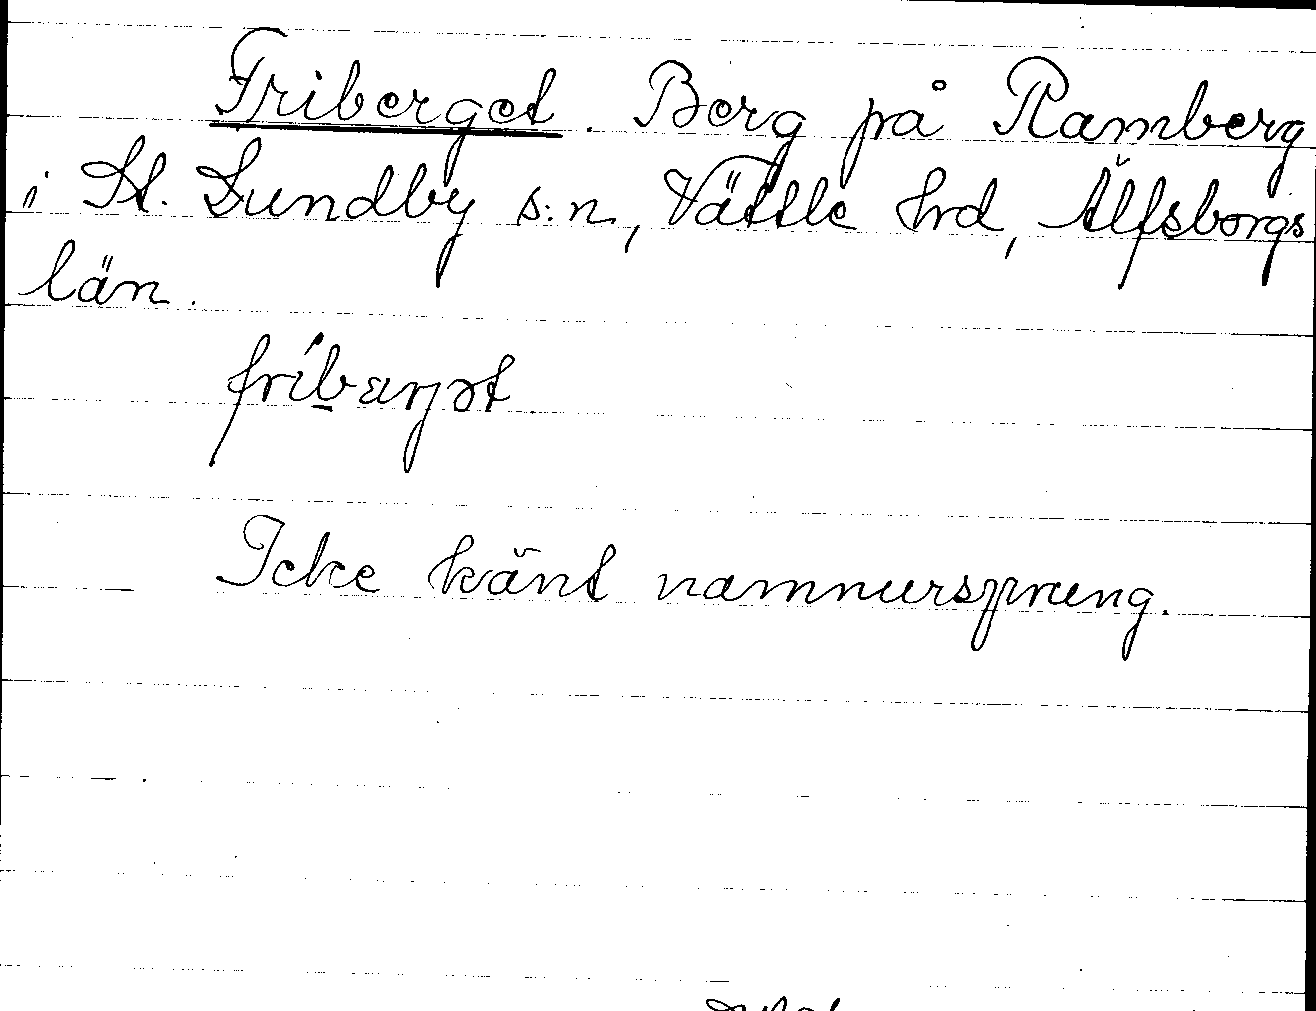 Friberget. Berg på Ramberg
i St. Lundby s:n, Vättle hrd, Älfsborgs
län.
Icke känt namnursprung.